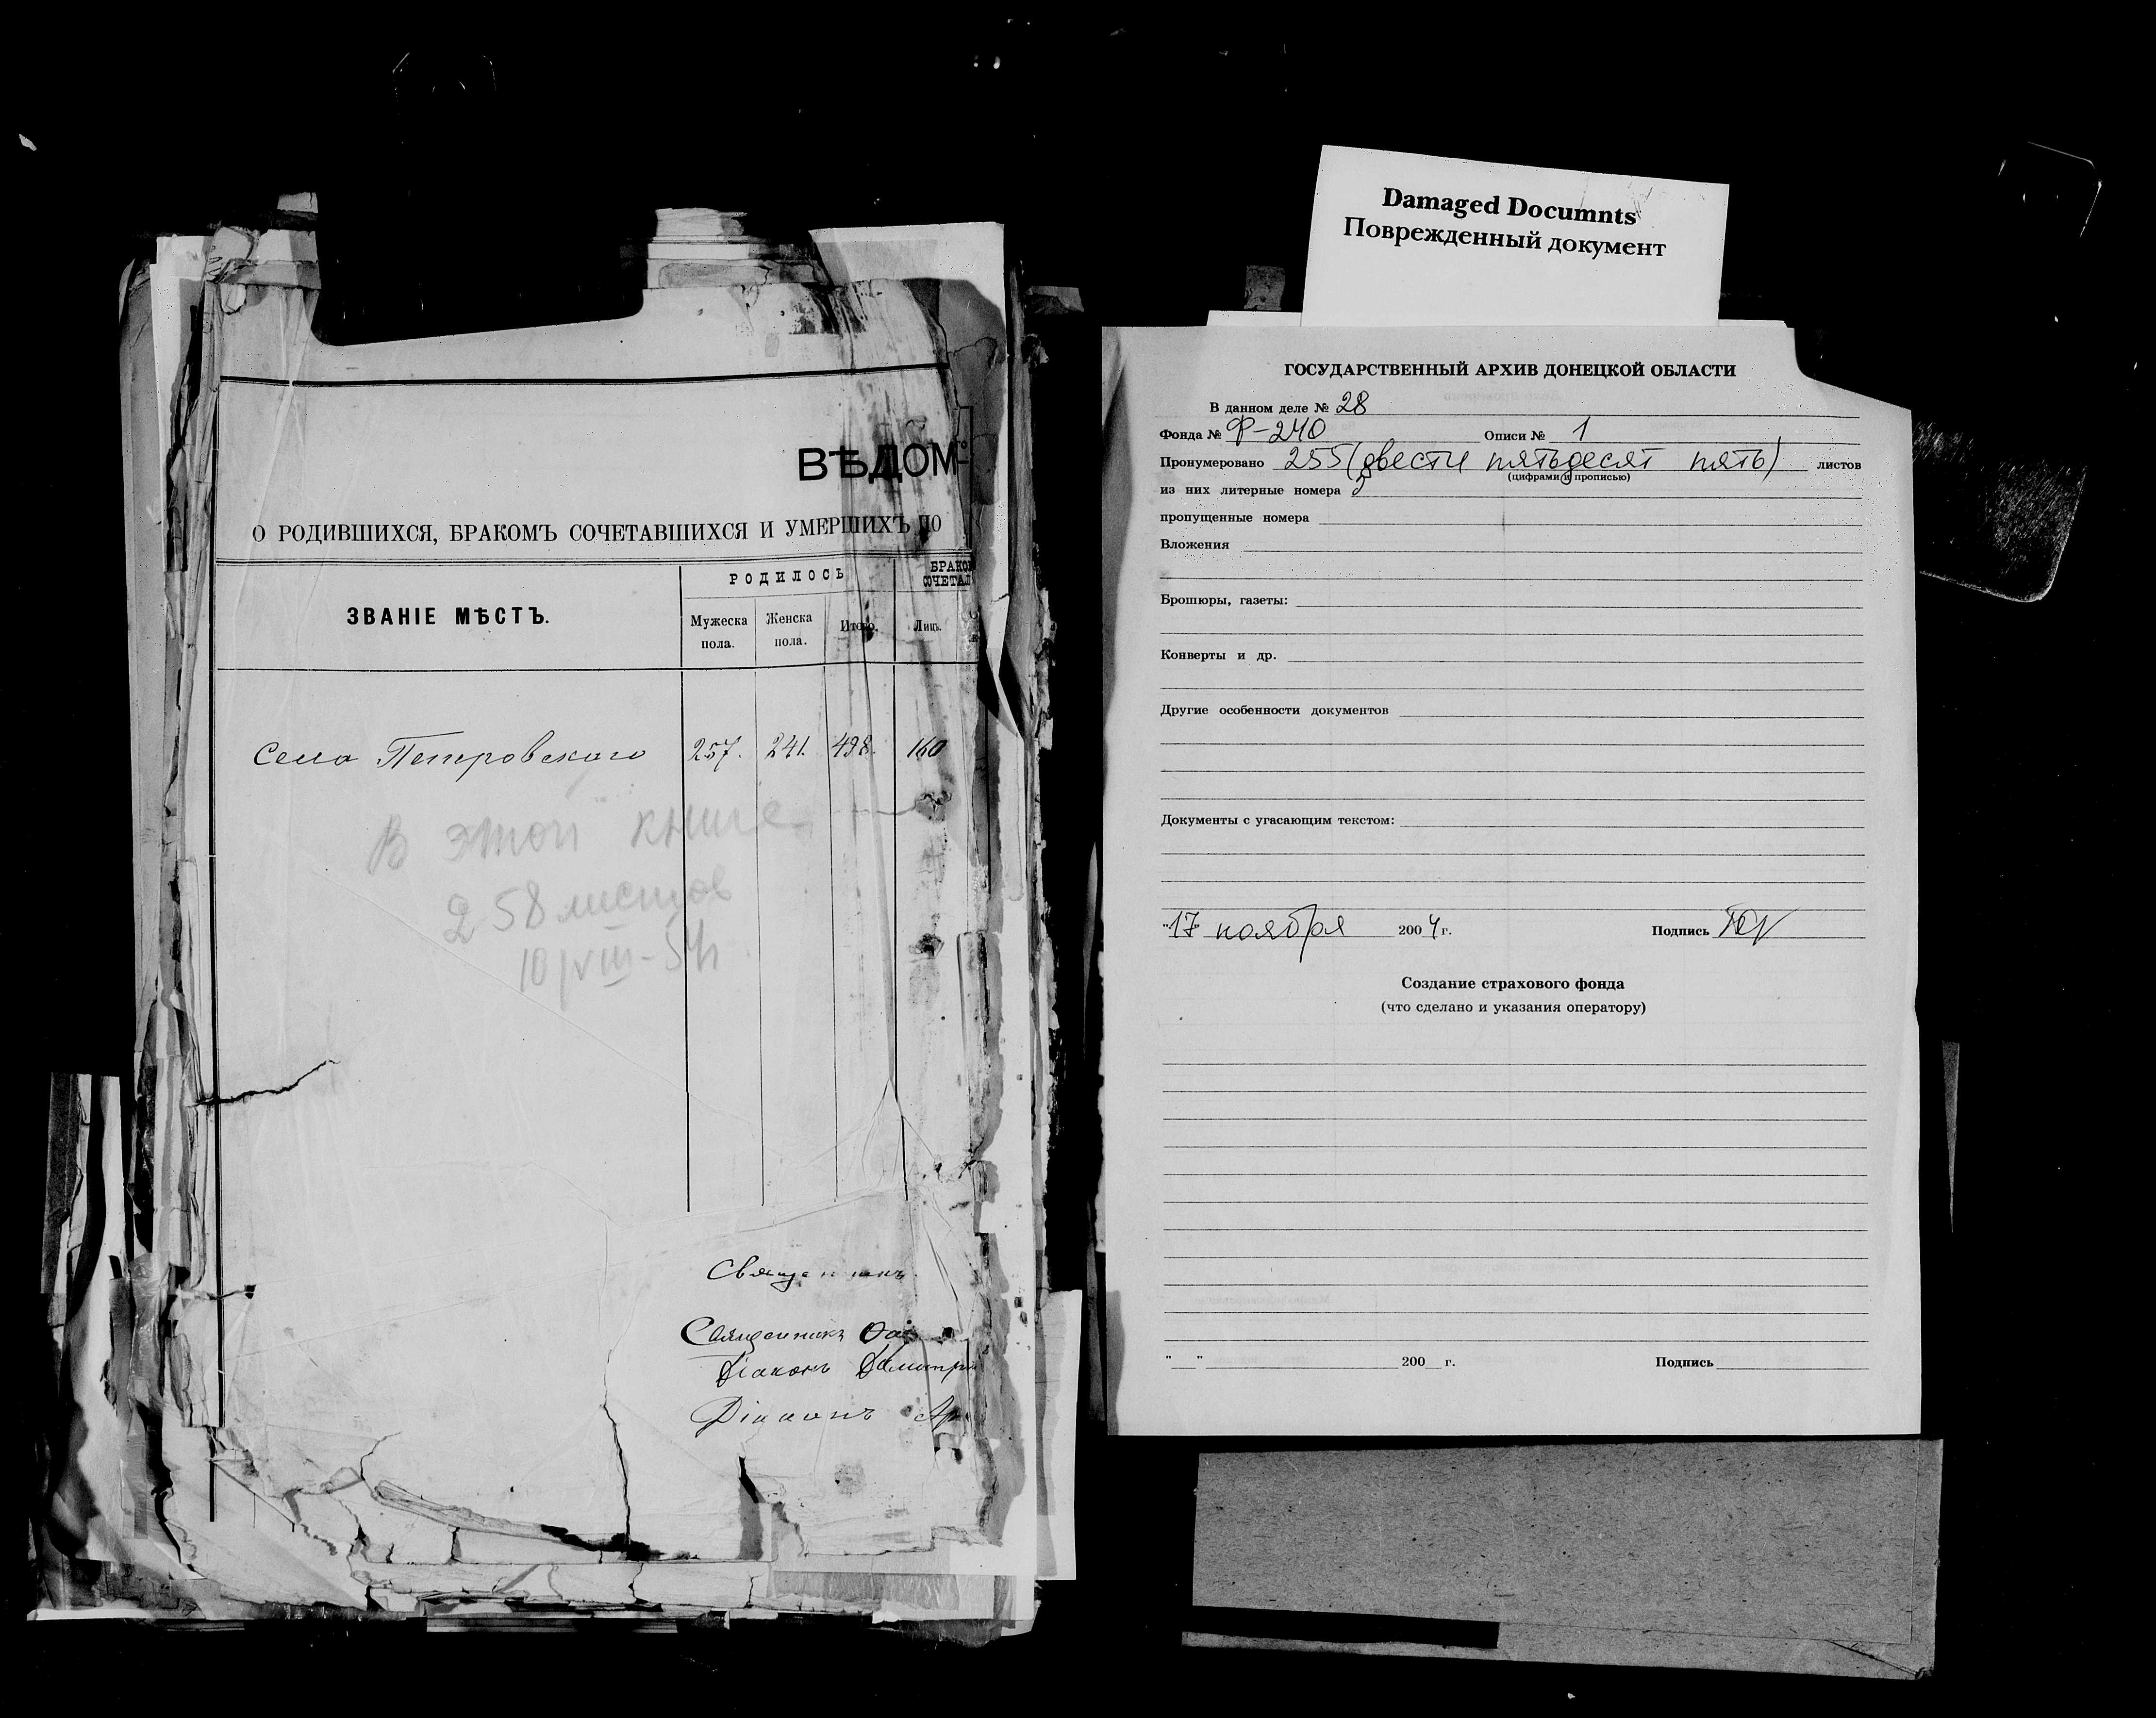 ВѢДОМ
О РОДИВШИХСЯ, БРАКОМЪ СОЧЕТАВШИХСЯ И УМЕРШИХЪ ПО
ЗВАНІЕ МѢСТЪ.
РОДИЛОСЬ
БРАКО
СОЧЕТАЛ
Мужеска пола.
Женска пола.
Итого.
Лицъ.
Села Петровскаго 257. 241. 498. 160
В этой книге
258 листов
10/VIII-
Священникъ
Священникъ
Діаконъ Димитрі
Діаконъ
Damaged Documnts
Поврежденный документ
ГОСУДАРСТВЕННЫЙ АРХИВ ДОНЕЦКОЙ ОБЛАСТИ
В данном деле № 28
Фонда № Ф-240 Описи № 1
Пронумеровано 255 (двести пятьдесят пять) листов
(цифрами и прописью)
из них литерные номера
пропущенные номера
Вложения
Брошюры, газеты:
Конверты и др.
Другие особенности документов
Документы с угасающим текстом:
"17" ноября 2004 г. Подпись
Создание страхового фонда
(что сделано и указания оператору)
" " 200 г. Подпись